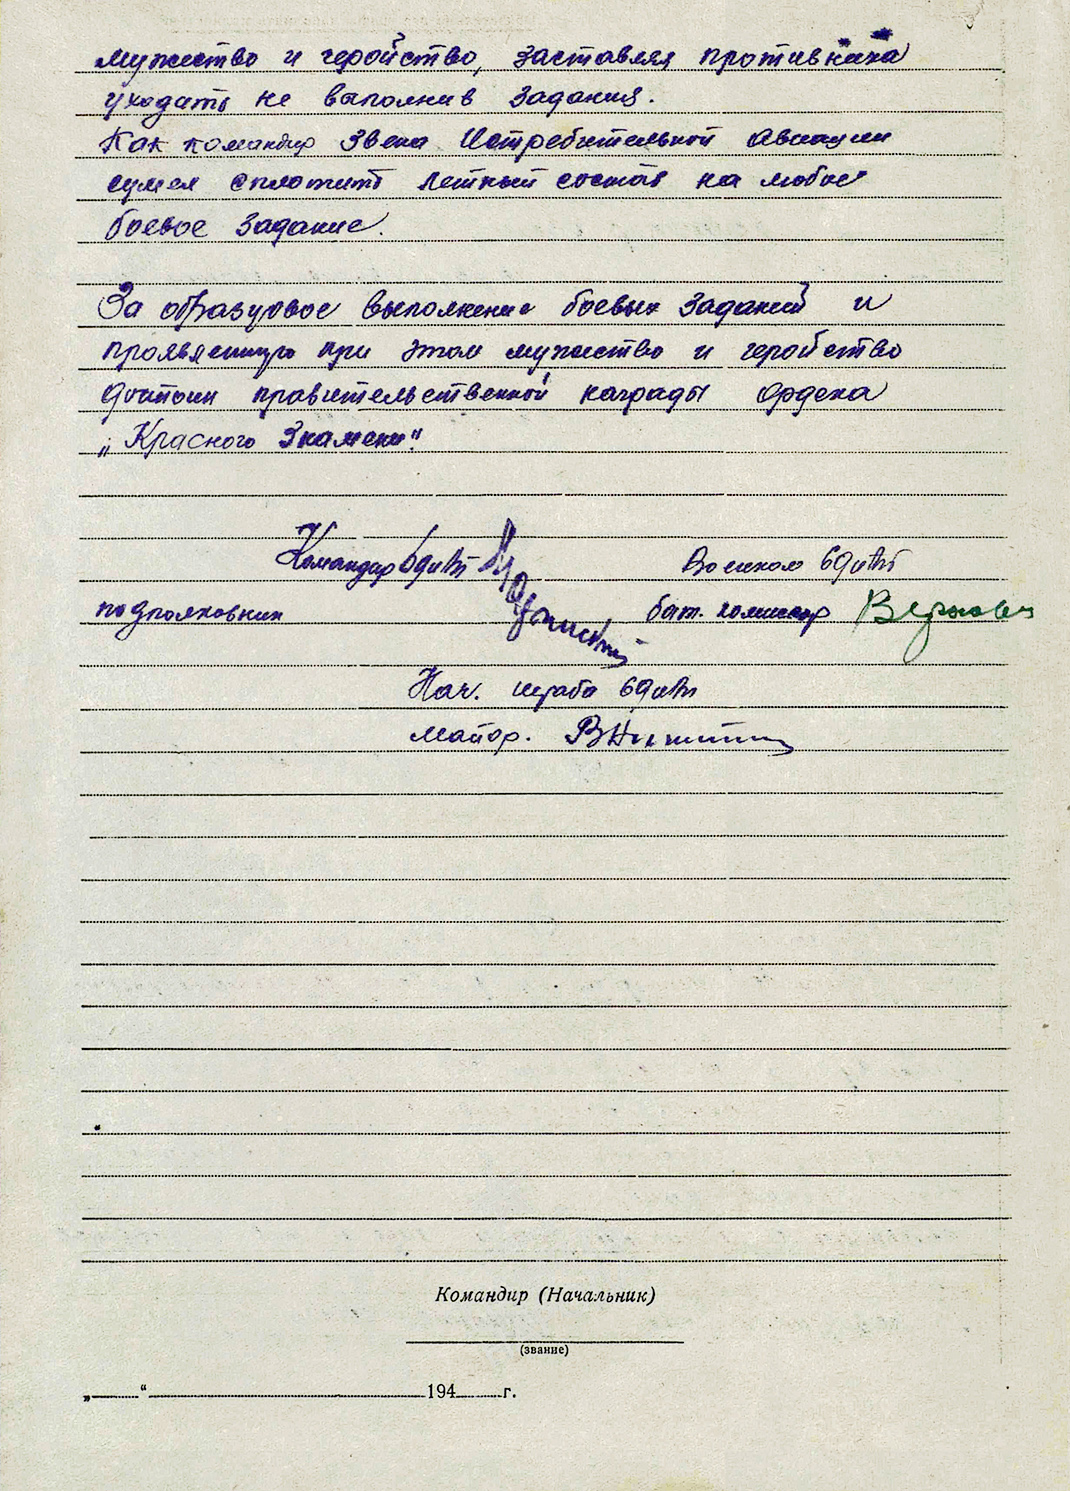 мужество и геройство, заставляя противника
уходать не выполнив задания.
Как командир звена Истребительной Авиации
сумел сплотить летный состав на любое
боевое задание.
За образцовое выполнение боевых заданий и
проявленную при этом мужество и геройство
достоин правительственной награды Ордена
„Красного Знамени".
Командир 6диап
Военком 6диап
подполковник
бат. комиссар
Нач. штаба 6диап
майор. ВНикитин
Командир (Начальник)
(звание)
„ “ 194 г.